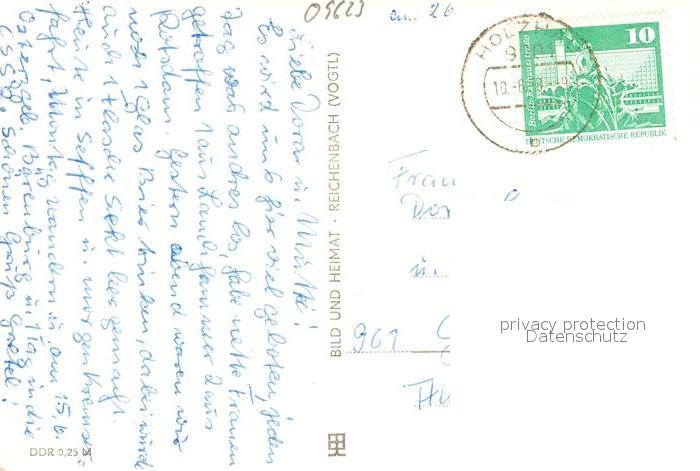 Liebe Dora u. Mutti!
Es wird uns hier viel geboten, jeden
Tag was anderes los, habe nette Frauen
getroffen 1 aus Landhammer 2 aus
Potsdam. Gestern abend waren wir
1 Glas Bier trinken, dabei wurde
auch 1 Flasche Sekt leer gemacht.
Heute in Seiffen u. morgen
fahrt, Montag wandern u. am 15.6.
Bärenburg u. 1 Tag in die
CSSR. Schönen Gruß Gretel.
DDR 0,25 M
BILD UND HEIMAT · REICHENBACH (VOGTL)
09623
am 26
HOLZH
10
Berlin, Rathausstraße
DEUTSCHE DEMOKRATISCHE REPUBLIK
Frau
Dor
u.
961
privacy protection
Datenschutz